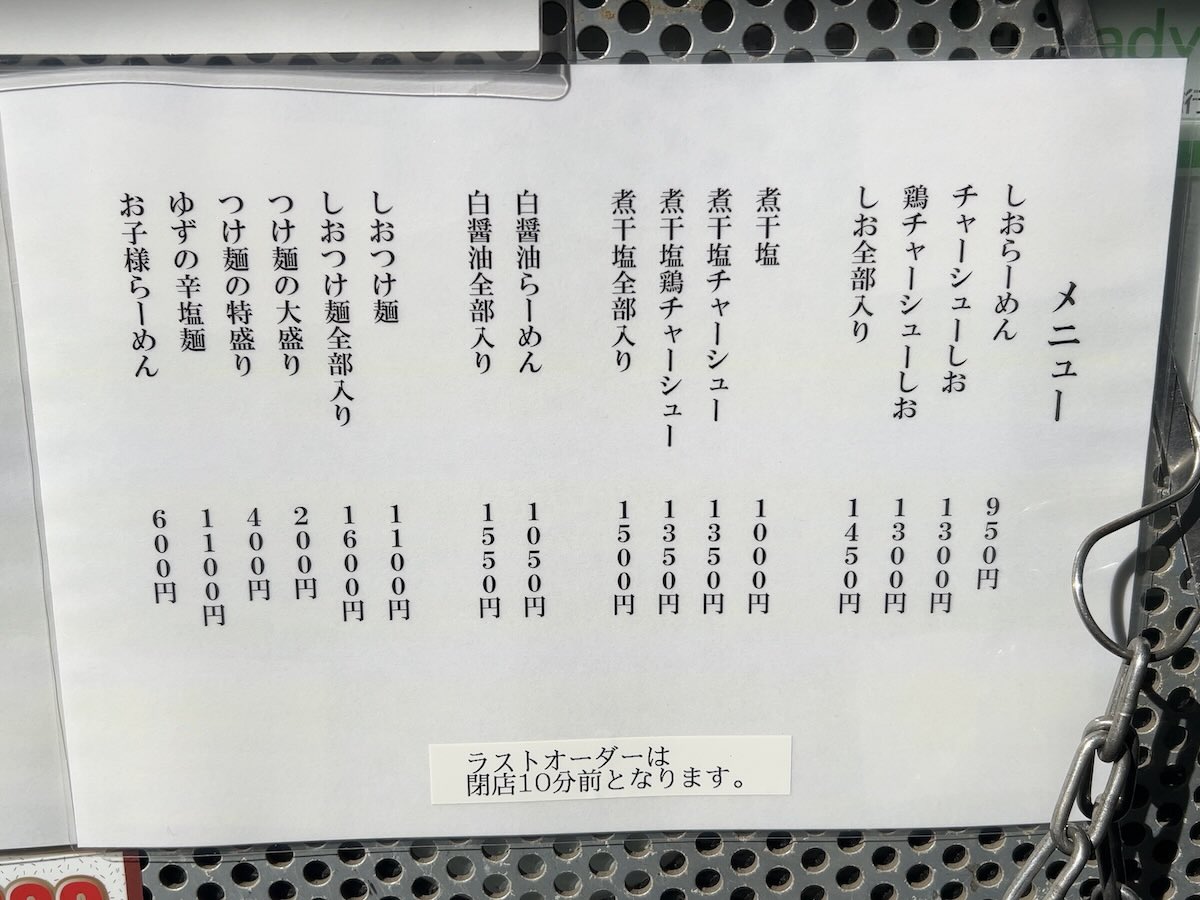 メニュー
しおらーめん 950円
チャーシューしお 1300円
鶏チャーシューしお 1300円
しお全部入り 1450円
煮干塩 1000円
煮干塩チャーシュー 1350円
煮干塩鶏チャーシュー 1350円
煮干塩全部入り 1500円
白醤油らーめん 1050円
白醤油全部入り 1550円
しおつけ麺 1100円
しおつけ麺全部入り 1600円
つけ麺の大盛り 200円
つけ麺の特盛り 400円
ゆずの辛塩麺 1100円
お子様らーめん 600円
ラストオーダーは
閉店10分前となります。
ady
行